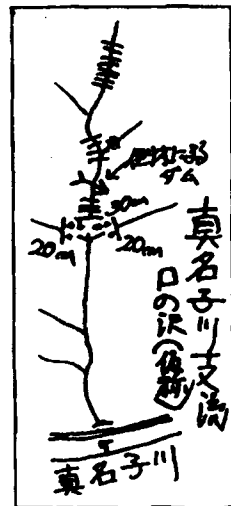 による
ダム
30m
20m
20m
真名子川支流
ロの沢(仮称)
真名子川